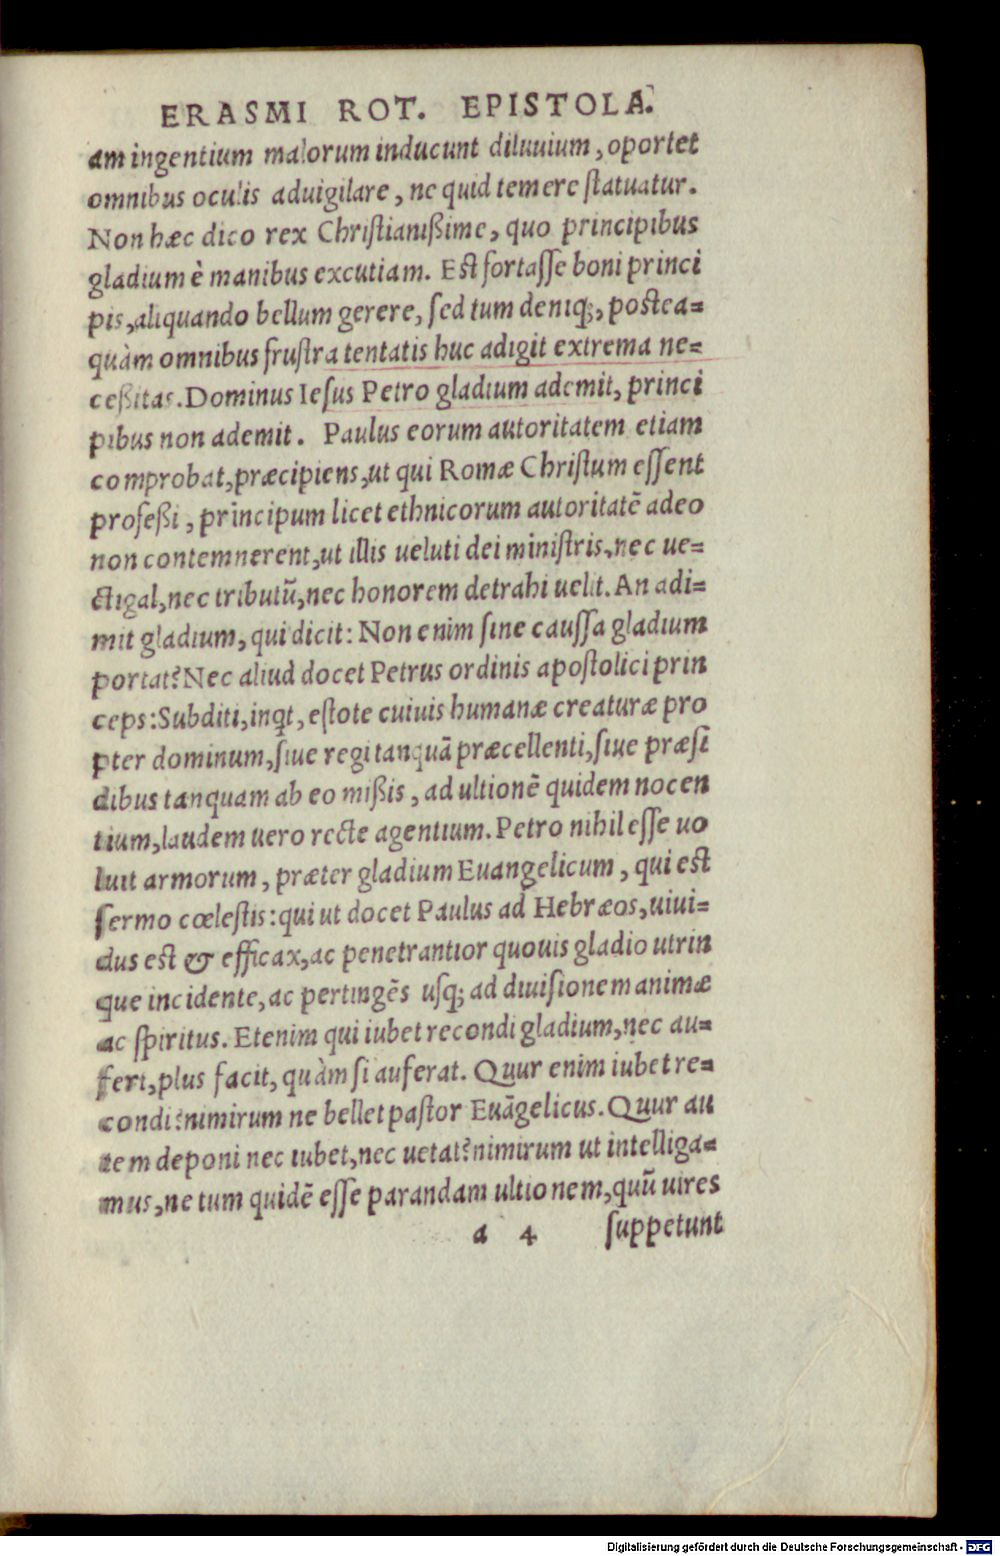 ERASMI ROT. EPISTOLA.
am ingentium malorum inducunt diluuium, oportet
omnibus oculis aduigilare, ne quid temere ſtatuatur.
Non hæc dico rex Chriſtianißime, quo principibus
gladium è manibus excutiam. Eſt fortaſſe boni princi
pis, aliquando bellum gerere, ſed tum deniq;, poſtea=
quàm omnibus fruſtra tentatis huc adigit extrema ne=
ceßitas. Dominus Ieſus Petro gladium ademit, princi
pibus non ademit. Paulus eorum autoritatem etiam
comprobat, præcipiens, ut qui Romæ Chriſtum eſſent
profeßi, principum licet ethnicorum autoritatē adeo
non contemnerent, ut illis ueluti dei miniſtris, nec ue=
ctigal, nec tributū, nec honorem detrahi uelit. An adi=
mit gladium, qui dicit: Non enim ſine cauſſa gladium
portat? Nec aliud docet Petrus ordinis apoſtolici prin
ceps: Subditi, inqt, eſtote cuiuis humanæ creaturæ pro
pter dominum, ſiue regi tanquā præcellenti, ſiue præſi
dibus tanquam ab eo mißis, ad ultionē quidem nocen
tium, laudem uero recte agentium. Petro nihil eſſe uo
luit armorum, præter gladium Euangelicum, qui eſt
ſermo cœleſtis: qui ut docet Paulus ad Hebræos, uiui=
dus eſt & efficax, ac penetrantior quouis gladio utrin
que incidente, ac pertingēs uſq; ad diuiſionem animæ
ac ſpiritus. Etenim qui iubet recondi gladium, nec au=
fert, plus facit, quàm ſi auferat. Quur enim iubet re=
condi? nimirum ne bellet paſtor Euāgelicus. Quur au
tem deponi nec iubet, nec uetat? nimirum ut intelliga=
mus, ne tum quidē eſſe parandam ultionem, quū uires
a 4 ſuppetunt
Digitalisierung gefördert durch die Deutsche Forschungsgemeinschaft - DFG